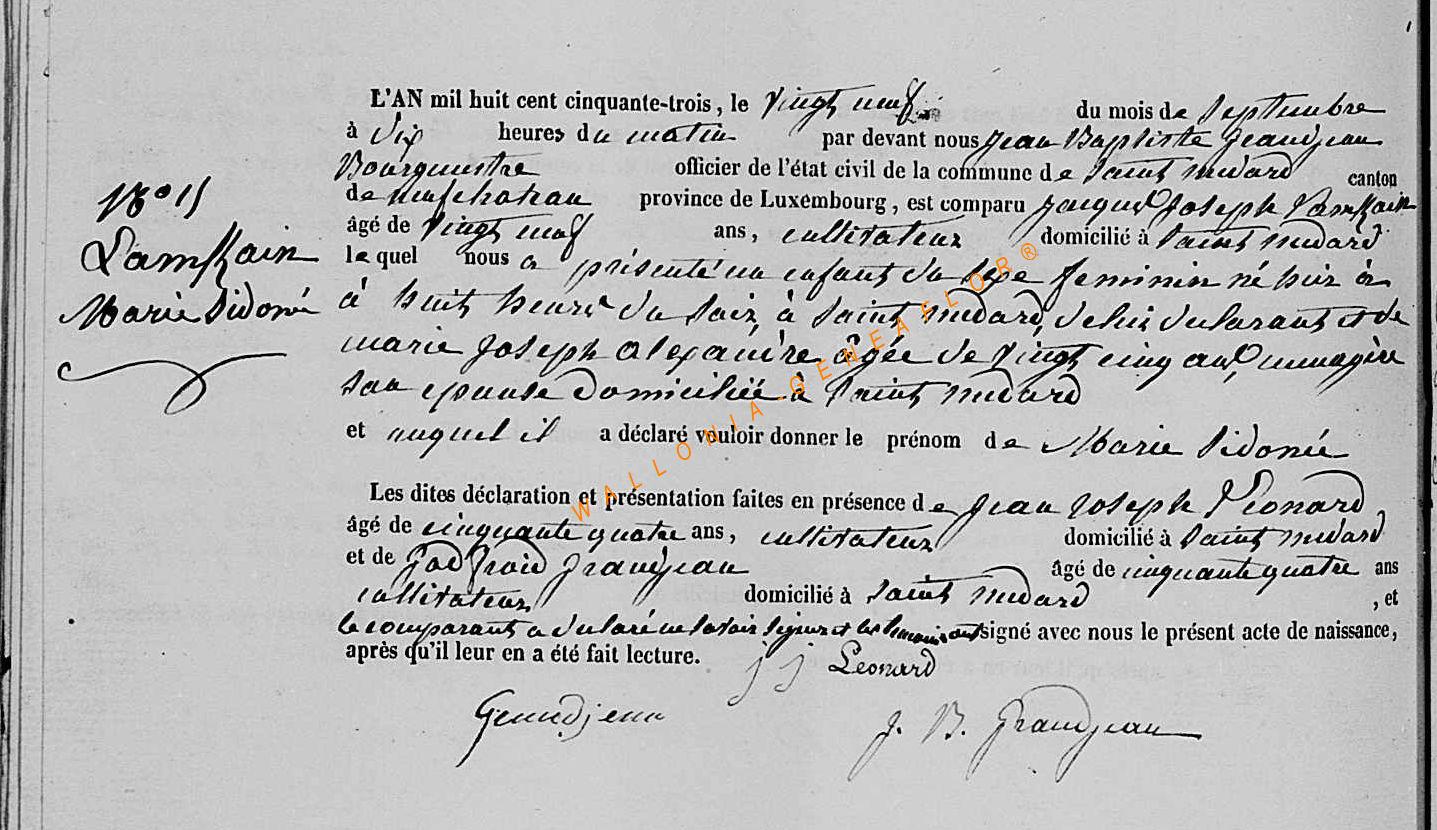 L'AN mil huit cent cinquante-trois, le vingt neuf du mois de Septembre
à dix heures du matin par devant nous Jean Baptiste Grandjean
Bourgmestre officier de l'état civil de la commune de Saint médard canton
de neufchateau province de Luxembourg, est comparu Jacques Joseph Lamkain
âgé de vingt neuf ans, cultivateur domicilié à Saint médard
lequel nous a présenté un enfant du sexe feminin né hier à
à huit heures du soir, à Saint médard, de lui déclarant et de
marie Joseph alexandre âgée de vingt cinq ans, menagère
son epouse domiciliée à Saint médard
et auquel il a déclaré vouloir donner le prénom de Marie Sidonie
Les dites déclaration et présentation faites en présence de Jean Joseph Léonard,
âgé de cinquante quatre ans, cultivateur domicilié à Saint médard
et de Godfroid Grandjean âgé de cinquante quatre ans
cultivateur domicilié à Saint médard, et
le comparant a déclaré ne savoir signer et les temoins ont signé avec nous le présent acte de naissance,
après qu'il leur en a été fait lecture. j j Leonard
Grandjean J. B. Grandjean
N° 15
Lamkain
Marie Sidonie
WALLONIA-GENEAFLOR®